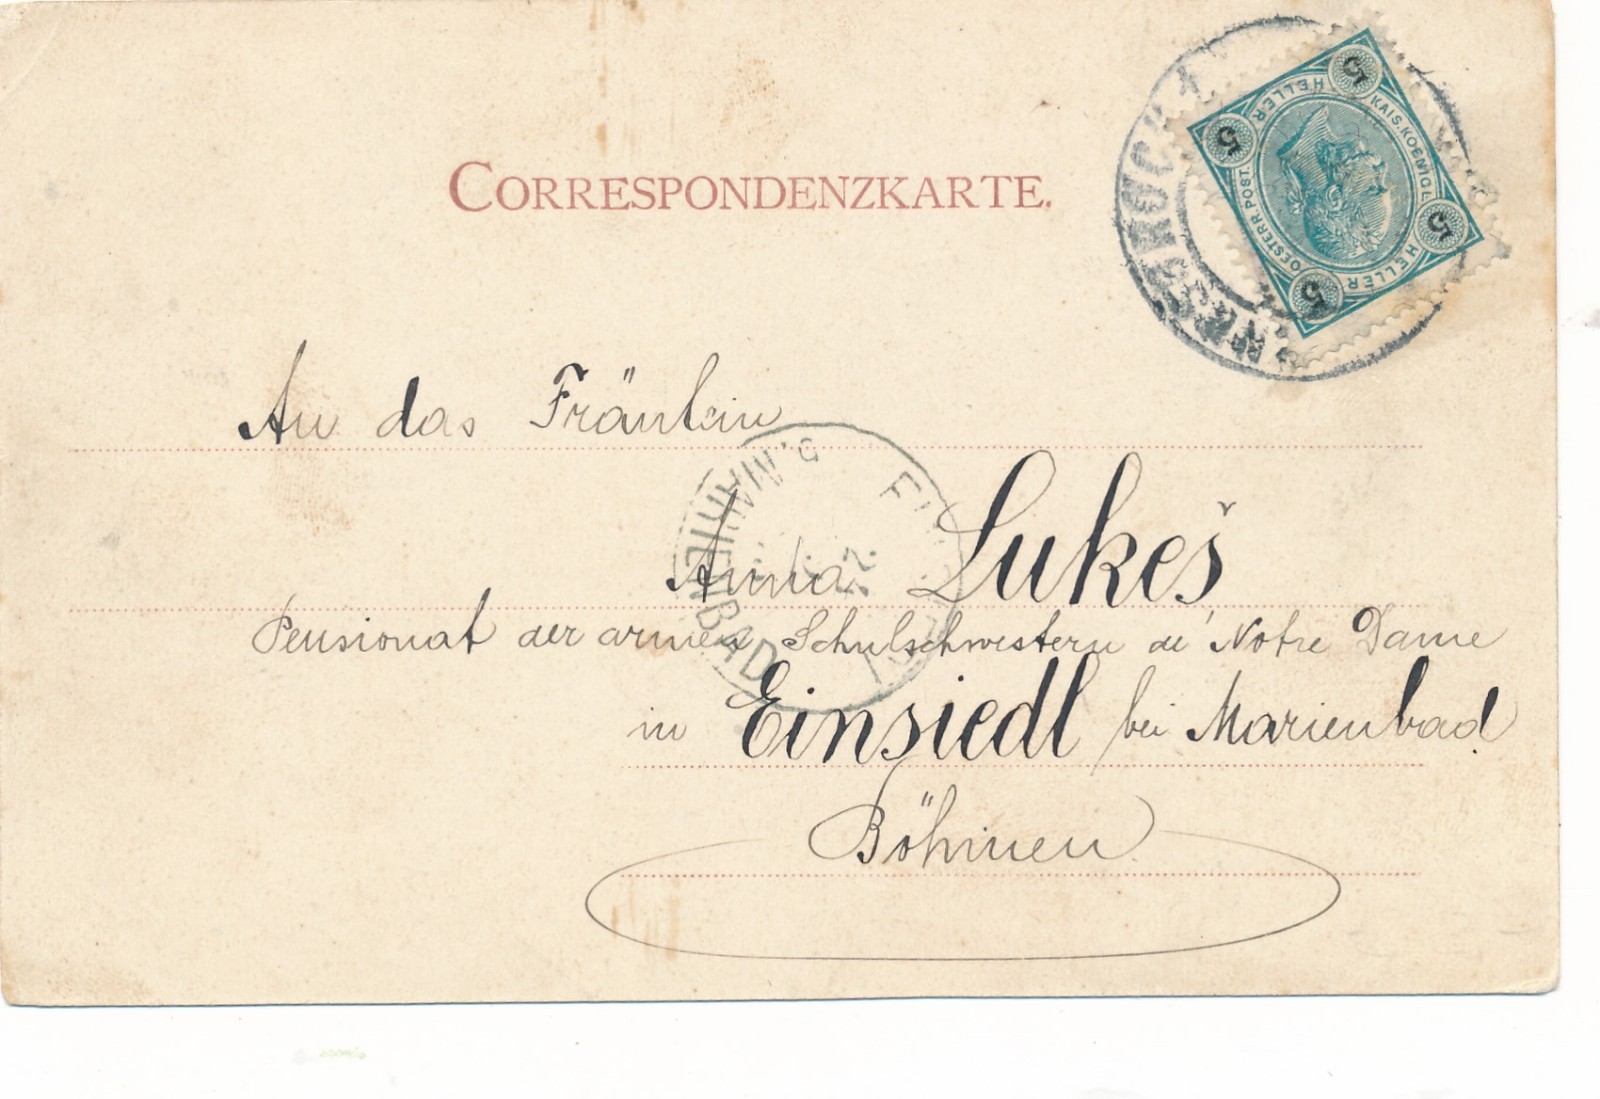 CORRESPONDENZKARTE.
5 5 5 5
KAIS. KOENIGL.
OESTERR. POST.
HELLER HELLER
An das Fräulein
Anna Lukeš
Pensionat der armen Schulschwestern de' Notre Dame
in Einsiedl bei Marienbad
Böhmen.
MARIENBAD